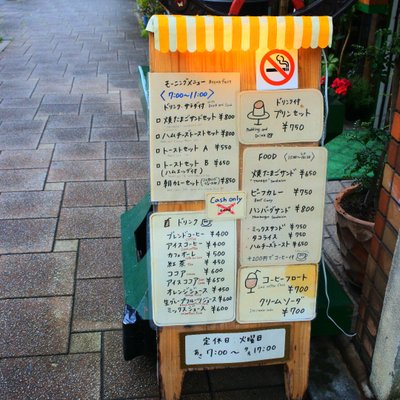 モーニングメニュー Breakfast
〈7:00〜11:00〉
ドリンク、サラダ付
焼たまごサンドセット ¥800
ハムチーズトーストセット ¥800
トーストセット A ¥550
トーストセット B ¥650
(ハムエッグ付)
朝カレーセット ¥850
ドリンク付
プリンセット
Pudding and
¥750
FOOD
焼たまごサンド ¥650
ビーフカレー ¥750
Beef Curry
ハンバーグサンド ¥800
ミックスサンド ¥750
タコライス ¥750
ハムチーズトースト ¥650
+200円でコーヒー付
Cash only
ドリンク
ブレンドコーヒー ¥400
アイスコーヒー ¥400
カフェオーレ ¥500
紅茶 ¥450
ココア ¥600
アイスココア ¥650
オレンジジュース ¥450
ミックスジュース ¥600
コーヒーフロート
¥700
クリームソーダ
¥700
定休日 火曜日
7:00〜17:00